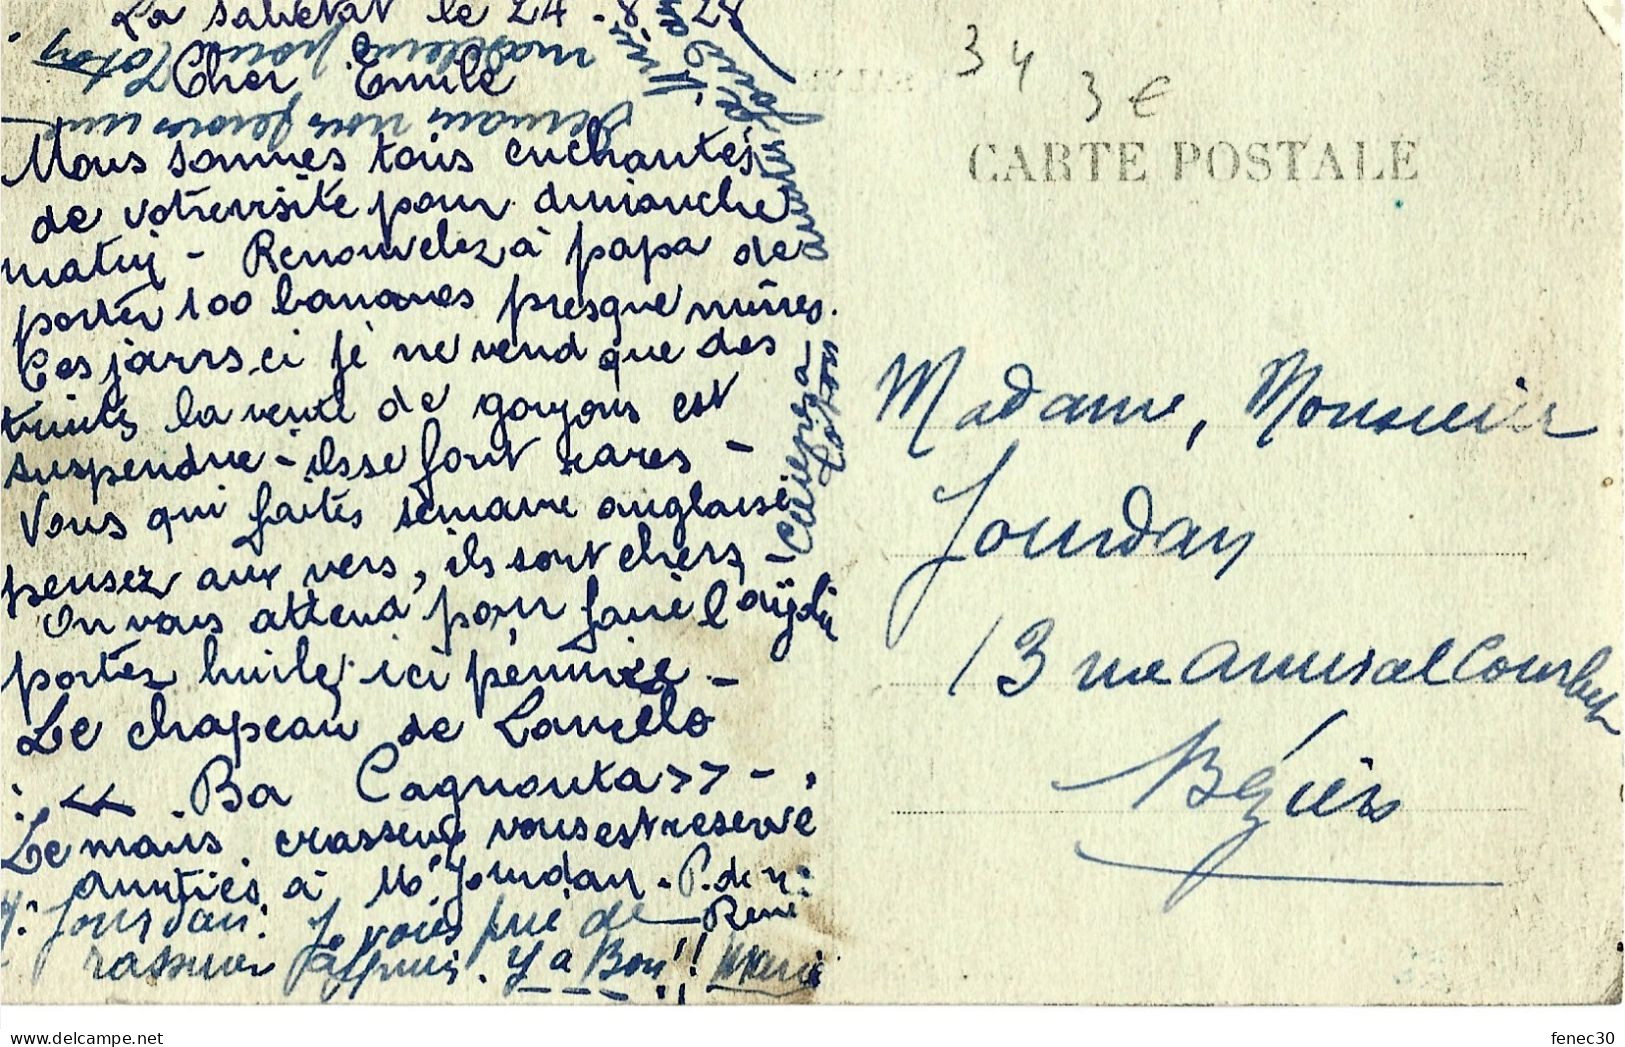 La Salvetat le 24-8-28
Cher Emile
Nous sommes tous enchantés
de votre visite pour dimanche
matin - Renouvelez à papa de
porter 100 bananes presque mûres.
Ces jours ci je ne vend que des
truites la vente de goujons est
suspendue - ils se font rares -
Vous qui faites semaine anglaise
pensez aux vers, ils sont chers -
On vous attend pour faire l'aïoli
portez huile. ici pénurie -
Le chapeau de
<< Ba Cagnouta >> -
Le mais crasseux vous est réservé
amitiés à Mr Jourdan. P. de
René
Mr Jourdan: Je vous prie de
rassurer. Y a Bon!! Marie
demain nous ferons une
madeleine pour Loton
Loton
34
3€
CARTE POSTALE
Madame, Monsieur
Jourdan
13 rue Amiral Courbet
Béziers
fenec30